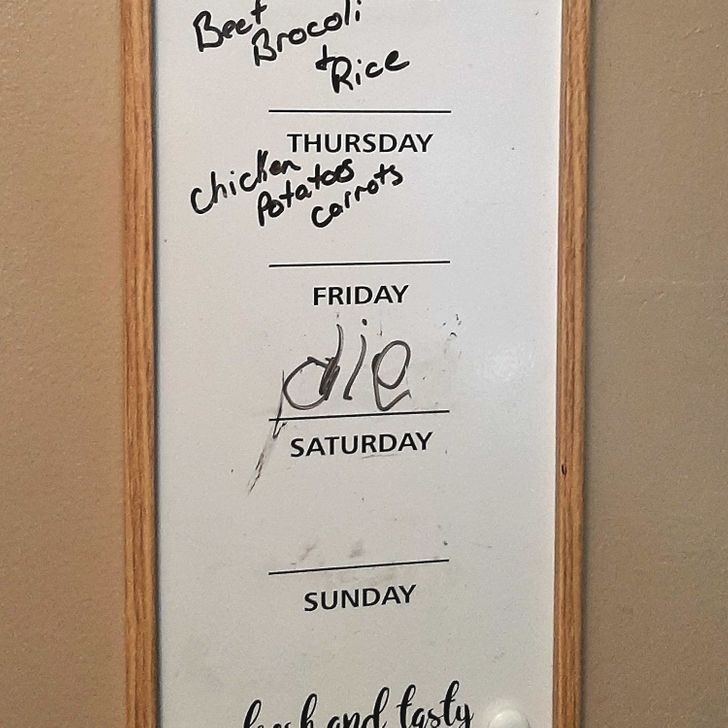 Beef
Brocoli
+ Rice
THURSDAY
Chicken
Potatoes
Carrots
FRIDAY
die
SATURDAY
SUNDAY
fresh and tasty